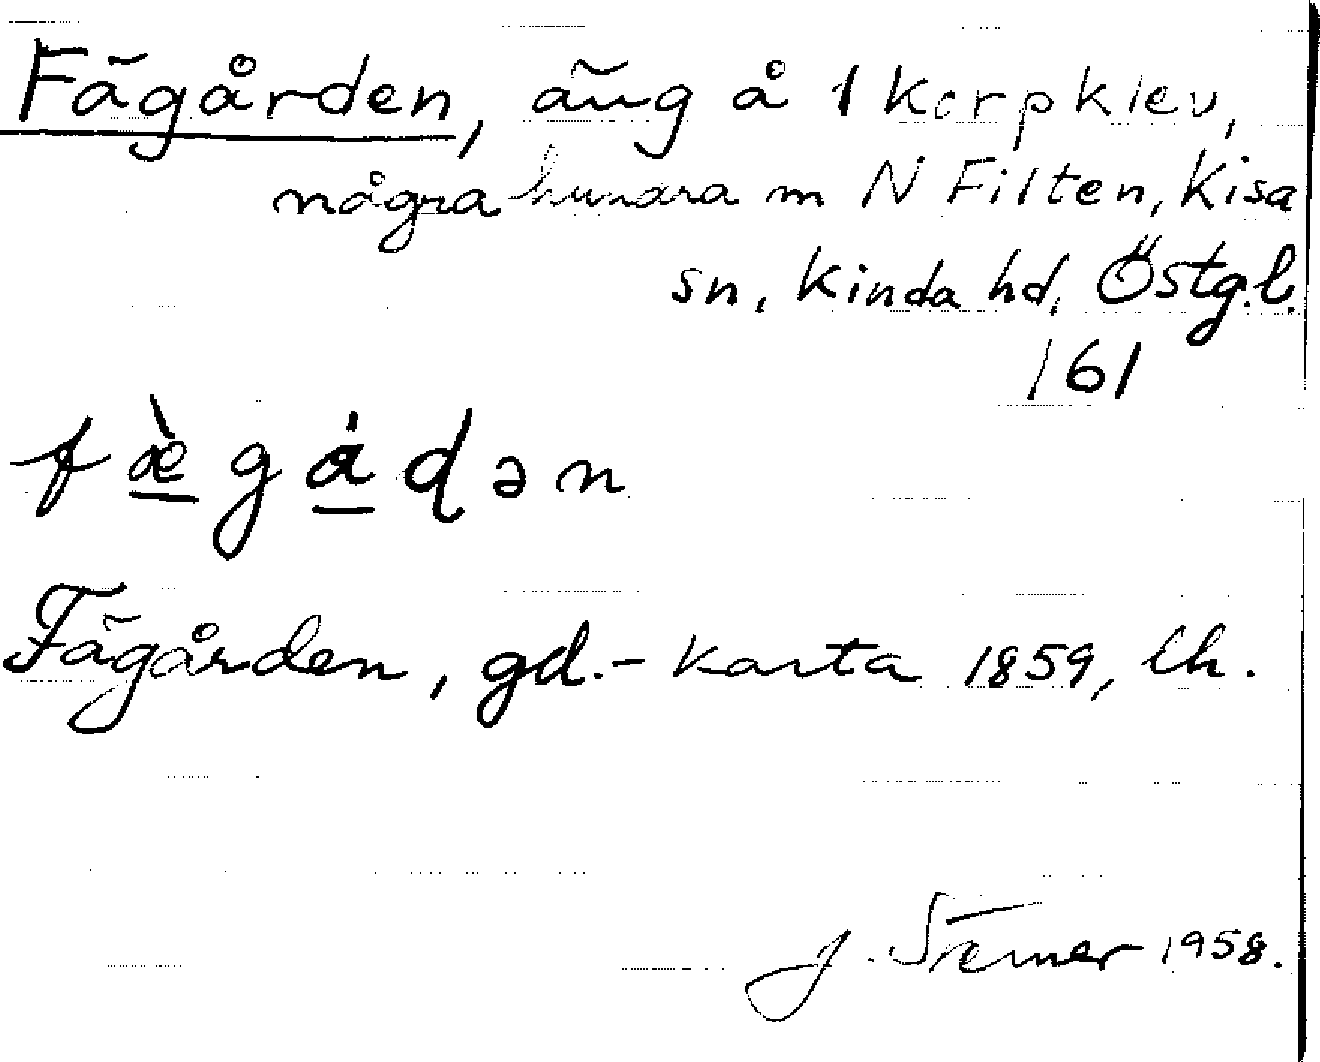 Fägården, äng å 1 Korpklev,
några hundra m N Filten, Kisa
sn, Kinda hd, Östg.l.
161
fæ̀gȧdən
Fägården, gd. - karta 1859, lh.
J. Stemer 1958.